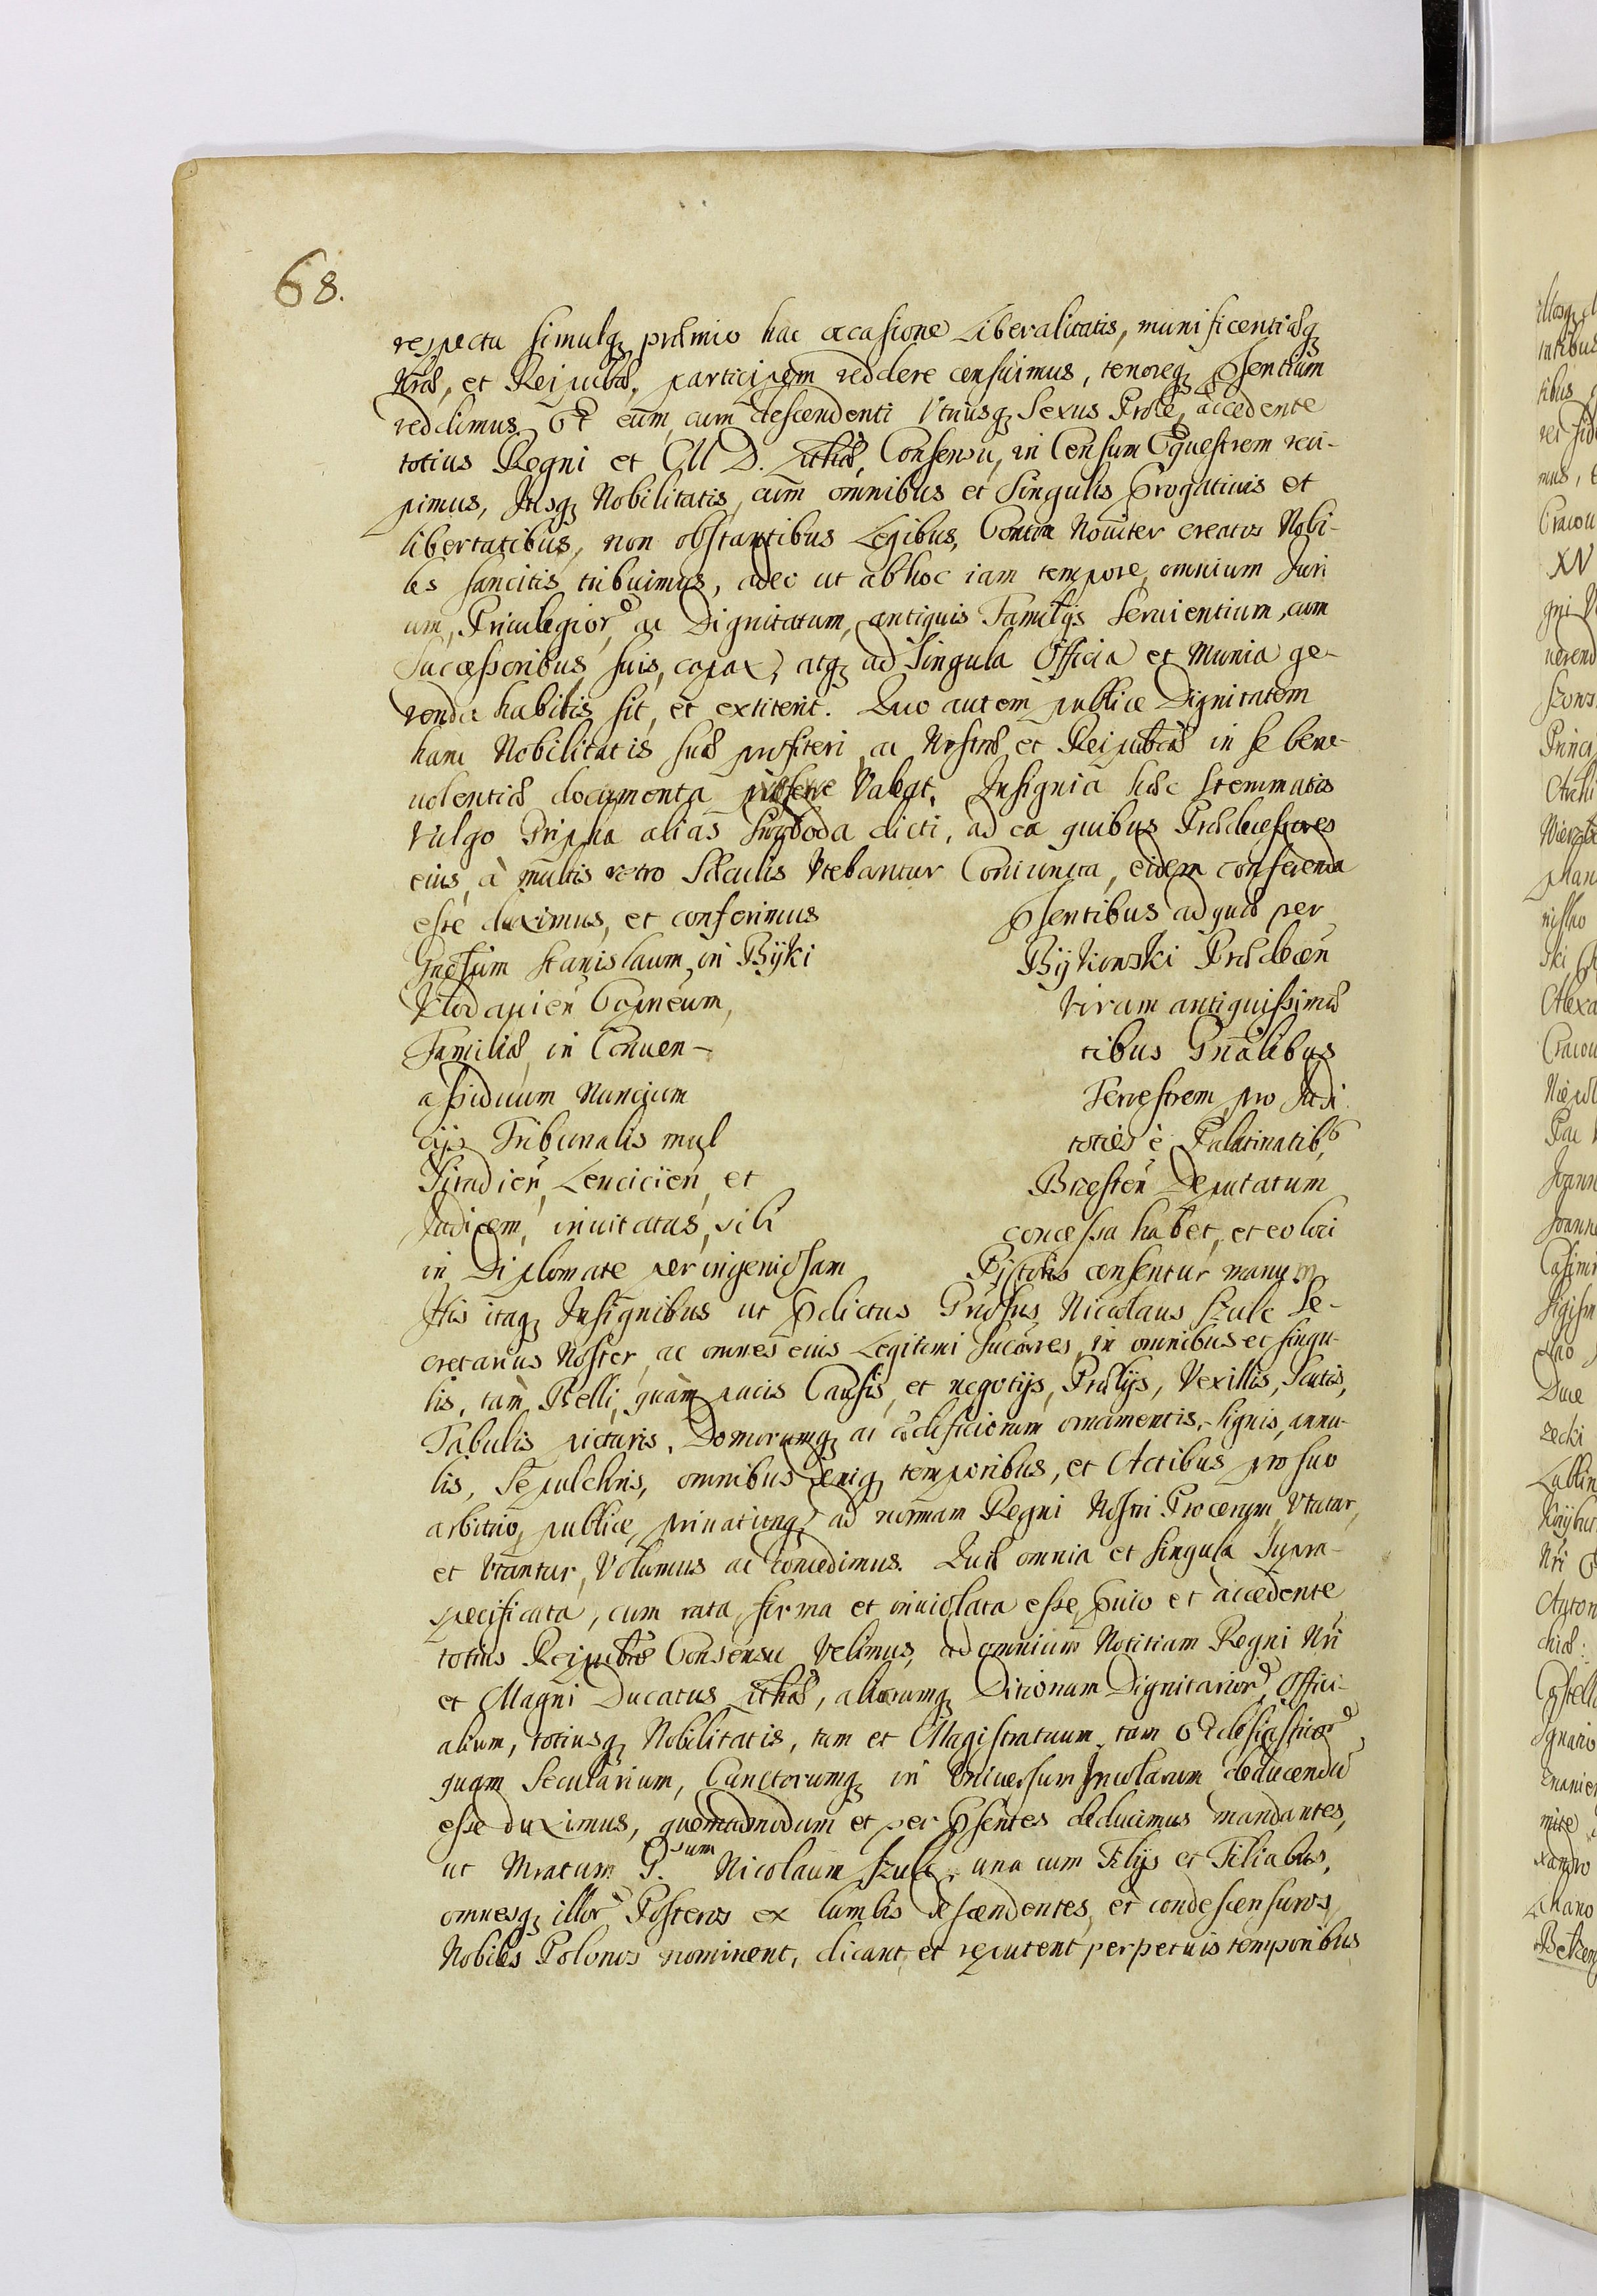 68.
respectu simulq₃ præmio hac occasione Liberalitatis, munificentiæq₃
Nræ, et Reipubcæ, participem reddere censuimus, tenoreq₃ pñsentium
reddimus. Et eum, cum descendenti Utriusq₃ Sexus Prole, accedente
totius Regni et M D. Lithæ, Consensu, in Censum Equestrem reci-
pimus, Jusq₃ Nobilitatis, cum omnibus et Singulis progatiuis et
libertatibus, non obstantibus Legibus, Contra Nouiter creatos Nobi-
les sancitis tribuimus, adeo ut ab hoc iam tempore, omnium Juri
um, Priuilegior, ac Dignitatum, antiquis Familÿs Seruientium, cum
Successoribus suis, capax, atq₃ ad Singula Officia et Munia ge-
renda habilis sit, et extiterit. Quo autem publice Dignitatem
hanc Nobilitatis suæ profiteri, ac Nostræ et Reipubcæ in se bene-
uolentiæ documenta Valeat, Insignia hæc Stemmatis
Vulgo Gripha alias Swoboda dicti, ad ea quibus Prædecessores
eius, à multis retro Sæculis Utebantur Coniuncta, eidem conferenda
esse duximus, et conferimus pñsentibus ad quæ per
Gnesum Stanislaum in Bÿki Bÿkowski Prædecen
Włodapien Capneum, Virum antiquissimæ
Familiæ, in Conuen- tibus Gnalibus
assiduum Nuncium Terrestrem, pro Judi
cÿs Tribunalis mul toties è Palatinatib,
Siradien, Lencicien, et Bresten Deputatum
Judicem, inuitatus, sibi concessa habet, et eo loci
in Diplomate per ingeniosam Pictoris censentur manum.
His itaq₃ Insignibus ut pdictus Gnosus Nicolaus Szulc Se-
cretarius Noster, ac omnes eius Legitimi Succores, in omnibus et singu-
lis, tàm Belli, quàm pacis Causis, et negotÿs, Prælÿs, Vexillis, Scutis,
Tabulis picturis, Domorumq₃ ac ædificiorum ornamentis, Signis, annu-
lis, Sepulchris, omnibus deniq₃ temporibus, et Actibus pro suo
arbitrio, publice, priuatimq₃ ad normam Regni Nostri Procerum Utatur,
et Utantur, Volumus ac Concedimus. Quæ omnia et singula Supra-
specificata, cum rata, firma et inuiolata esse, puio et accedente
totius Reipubcæ Consensu Velimus, ad omnium Notitiam Regni Nri
et Magni Ducatus Lithæ, aliorumq₃ Ditionum Dignitarior, Offici-
alium, totiusq₃ Nobilitatis, tum et Magistratuum, tam Ecclesiasticor,
quam Secularium, Cunctorumq₃ in Uniuersum Incolarum deducenda
esse duximus, quemadmodum et per pñsentes deducimus mandantes,
ut Mratum G.sum Nicolaum Szulc, una cum Filÿs et Filiabus,
omnesq₃ illor Posteros ex lumbis descendentes, et condescensuros,
Nobiles Polonos nominent, dicant, et reputent perpetuis temporibus